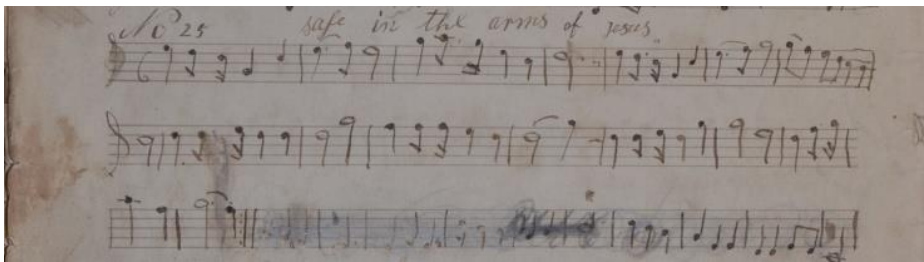 No 25 safe in the arms of jesus